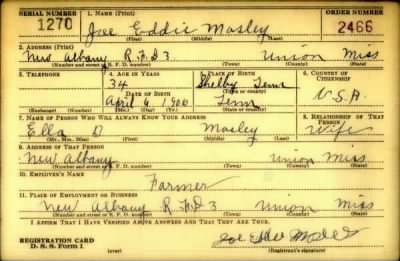 SERIAL NUMBER 1. NAME (Print) ORDER NUMBER
1270 Joe Eddie Mosley 2466
(First) (Middle) (Last)
2. ADDRESS (Print)
New Albany R.F.D 3 Union Miss
(Number and street or R. F. D. number) (Town) (County) (State)
3. TELEPHONE 4. AGE IN YEARS 5. PLACE OF BIRTH 6. COUNTRY OF CITIZENSHIP
34 Shelby Tenn
DATE OF BIRTH (Town or county)
April 6 1906 Tenn U.S.A
(Exchange) (Number) (Mo.) (Day) (Yr.) (State or country)
7. NAME OF PERSON WHO WILL ALWAYS KNOW YOUR ADDRESS 8. RELATIONSHIP OF THAT PERSON
Ella D Mosley Wife
(Mr., Mrs., Miss) (First) (Middle) (Last)
9. ADDRESS OF THAT PERSON
New Albany Union Miss
(Number and street or R. F. D. number) (Town) (County) (State)
10. EMPLOYER'S NAME
Farmer
11. PLACE OF EMPLOYMENT OR BUSINESS
New Albany R.F.D 3 Union Miss
(Number and street or R. F. D. number) (Town) (County) (State)
I AFFIRM THAT I HAVE VERIFIED ABOVE ANSWERS AND THAT THEY ARE TRUE.
REGISTRATION CARD
D. S. S. Form 1 (over) (Registrant's signature)
Joe Mosley